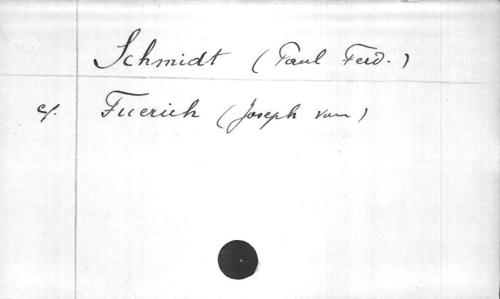 Schmidt (Paul Ferd.)
cf. Fuerich (Joseph von)